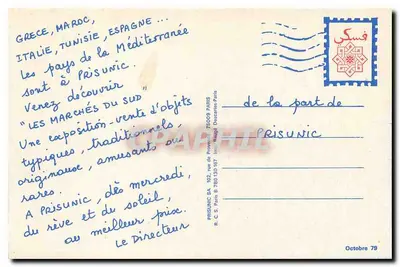 GRECE, MAROC,
ITALIE, TUNISIE, ESPAGNE...
Les pays de la Méditerranée
sont à PRISUNIC.
Venez découvrir
"LES MARCHÉS DU SUD"
Une exposition-vente d'objets
typiques, traditionnels,
originaux, amusants ou
rares.
A PRISUNIC, dès mercredi,
du rêve et du soleil,
au meilleur prix.
Le Directeur
فسكي
de la part de
PRISUNIC
PRISUNIC SA 102, rue de Provence 75009 PARIS
Octobre 79